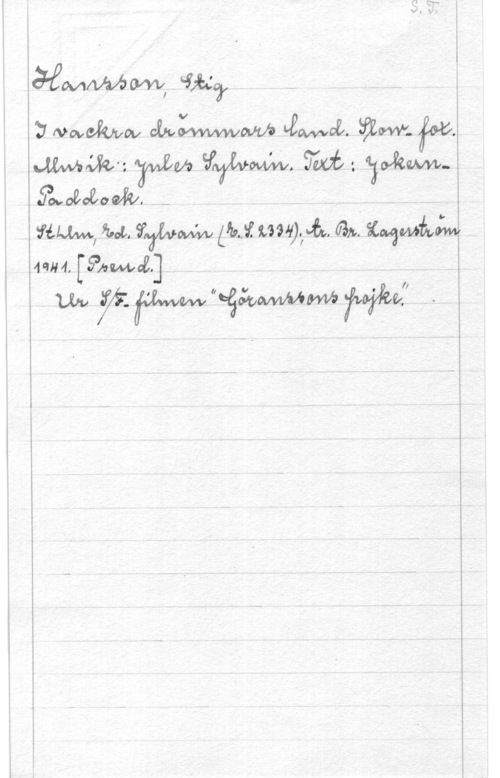 S. T.
Hansson, Stig
I vackra drömmars land. Slow-fox.
Musik: Jules Sylvain. Text: Jokern-
Paddock.
Sthlm, Ed. Sylvain (E. S. 2334), tr. Br. Lagerström
1941. [Pseud.]
Ur S/F-filmen "Göranssons pojke".